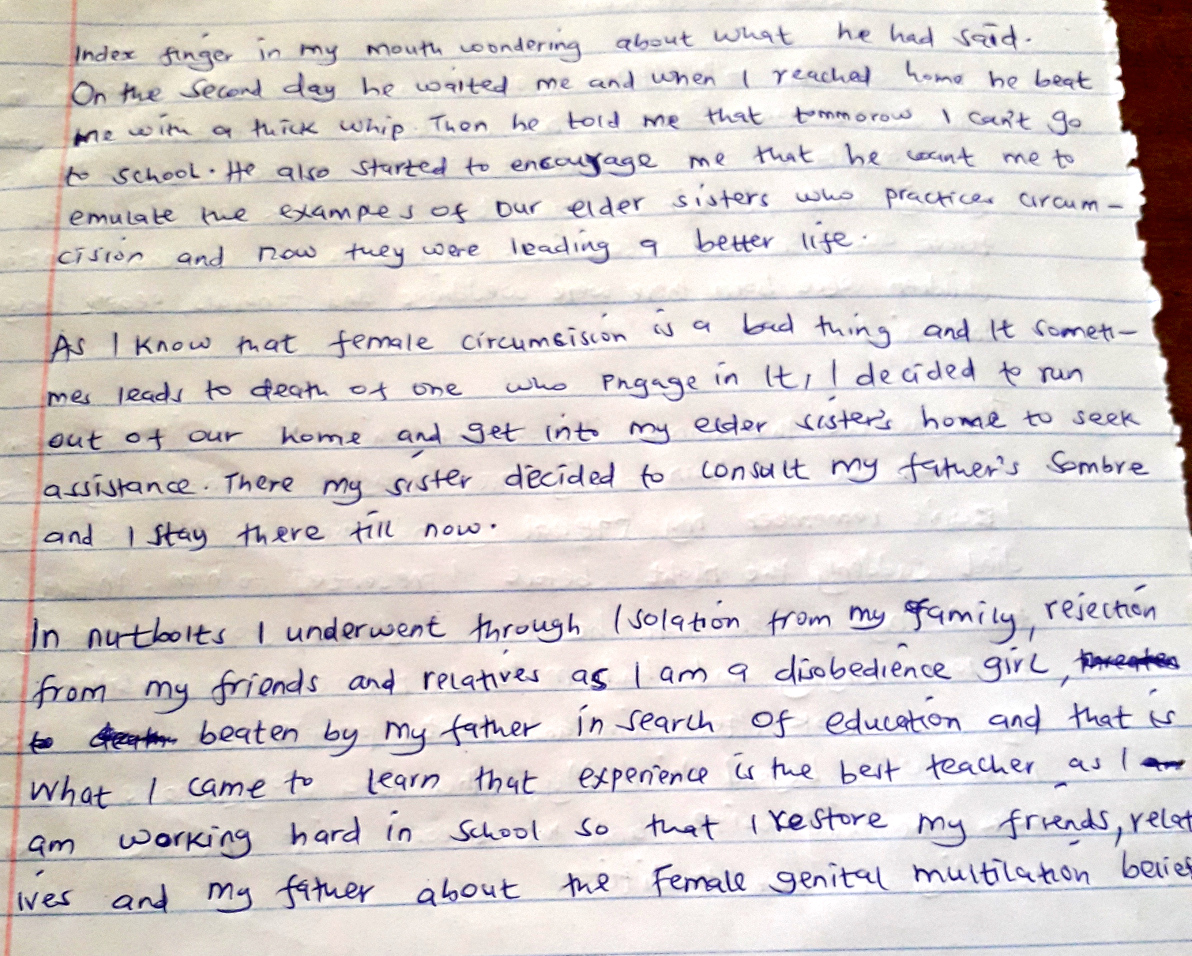 Index finger in my mouth wondering about what he had said.
On the second day he waited me and when I reached home he beat
me with a thick whip. Then he told me that tommorow I can't go
to school. He also started to encourage me that he want me to
emulate the exampes of our elder sisters who practices circum-
cision and now they were leading a better life.
As I know that female circumsision is a bad thing and It someti-
mes leads to death of one who engage in It, I decided to run
out of our home and get into my elder sister's home to seek
assistance. There my sister decided to consult my father's Sombre
and I stay there till now.
In nutbolts I underwent through Isolation from my family, rejection
from my friends and relatives as I am a disobedience girl, threaten
to death beaten by my father in search of education and that is
what I came to learn that experience is the best teacher as I am
am working hard in school so that I restore my friends, relat
ives and my father about the Female genital multilation belief